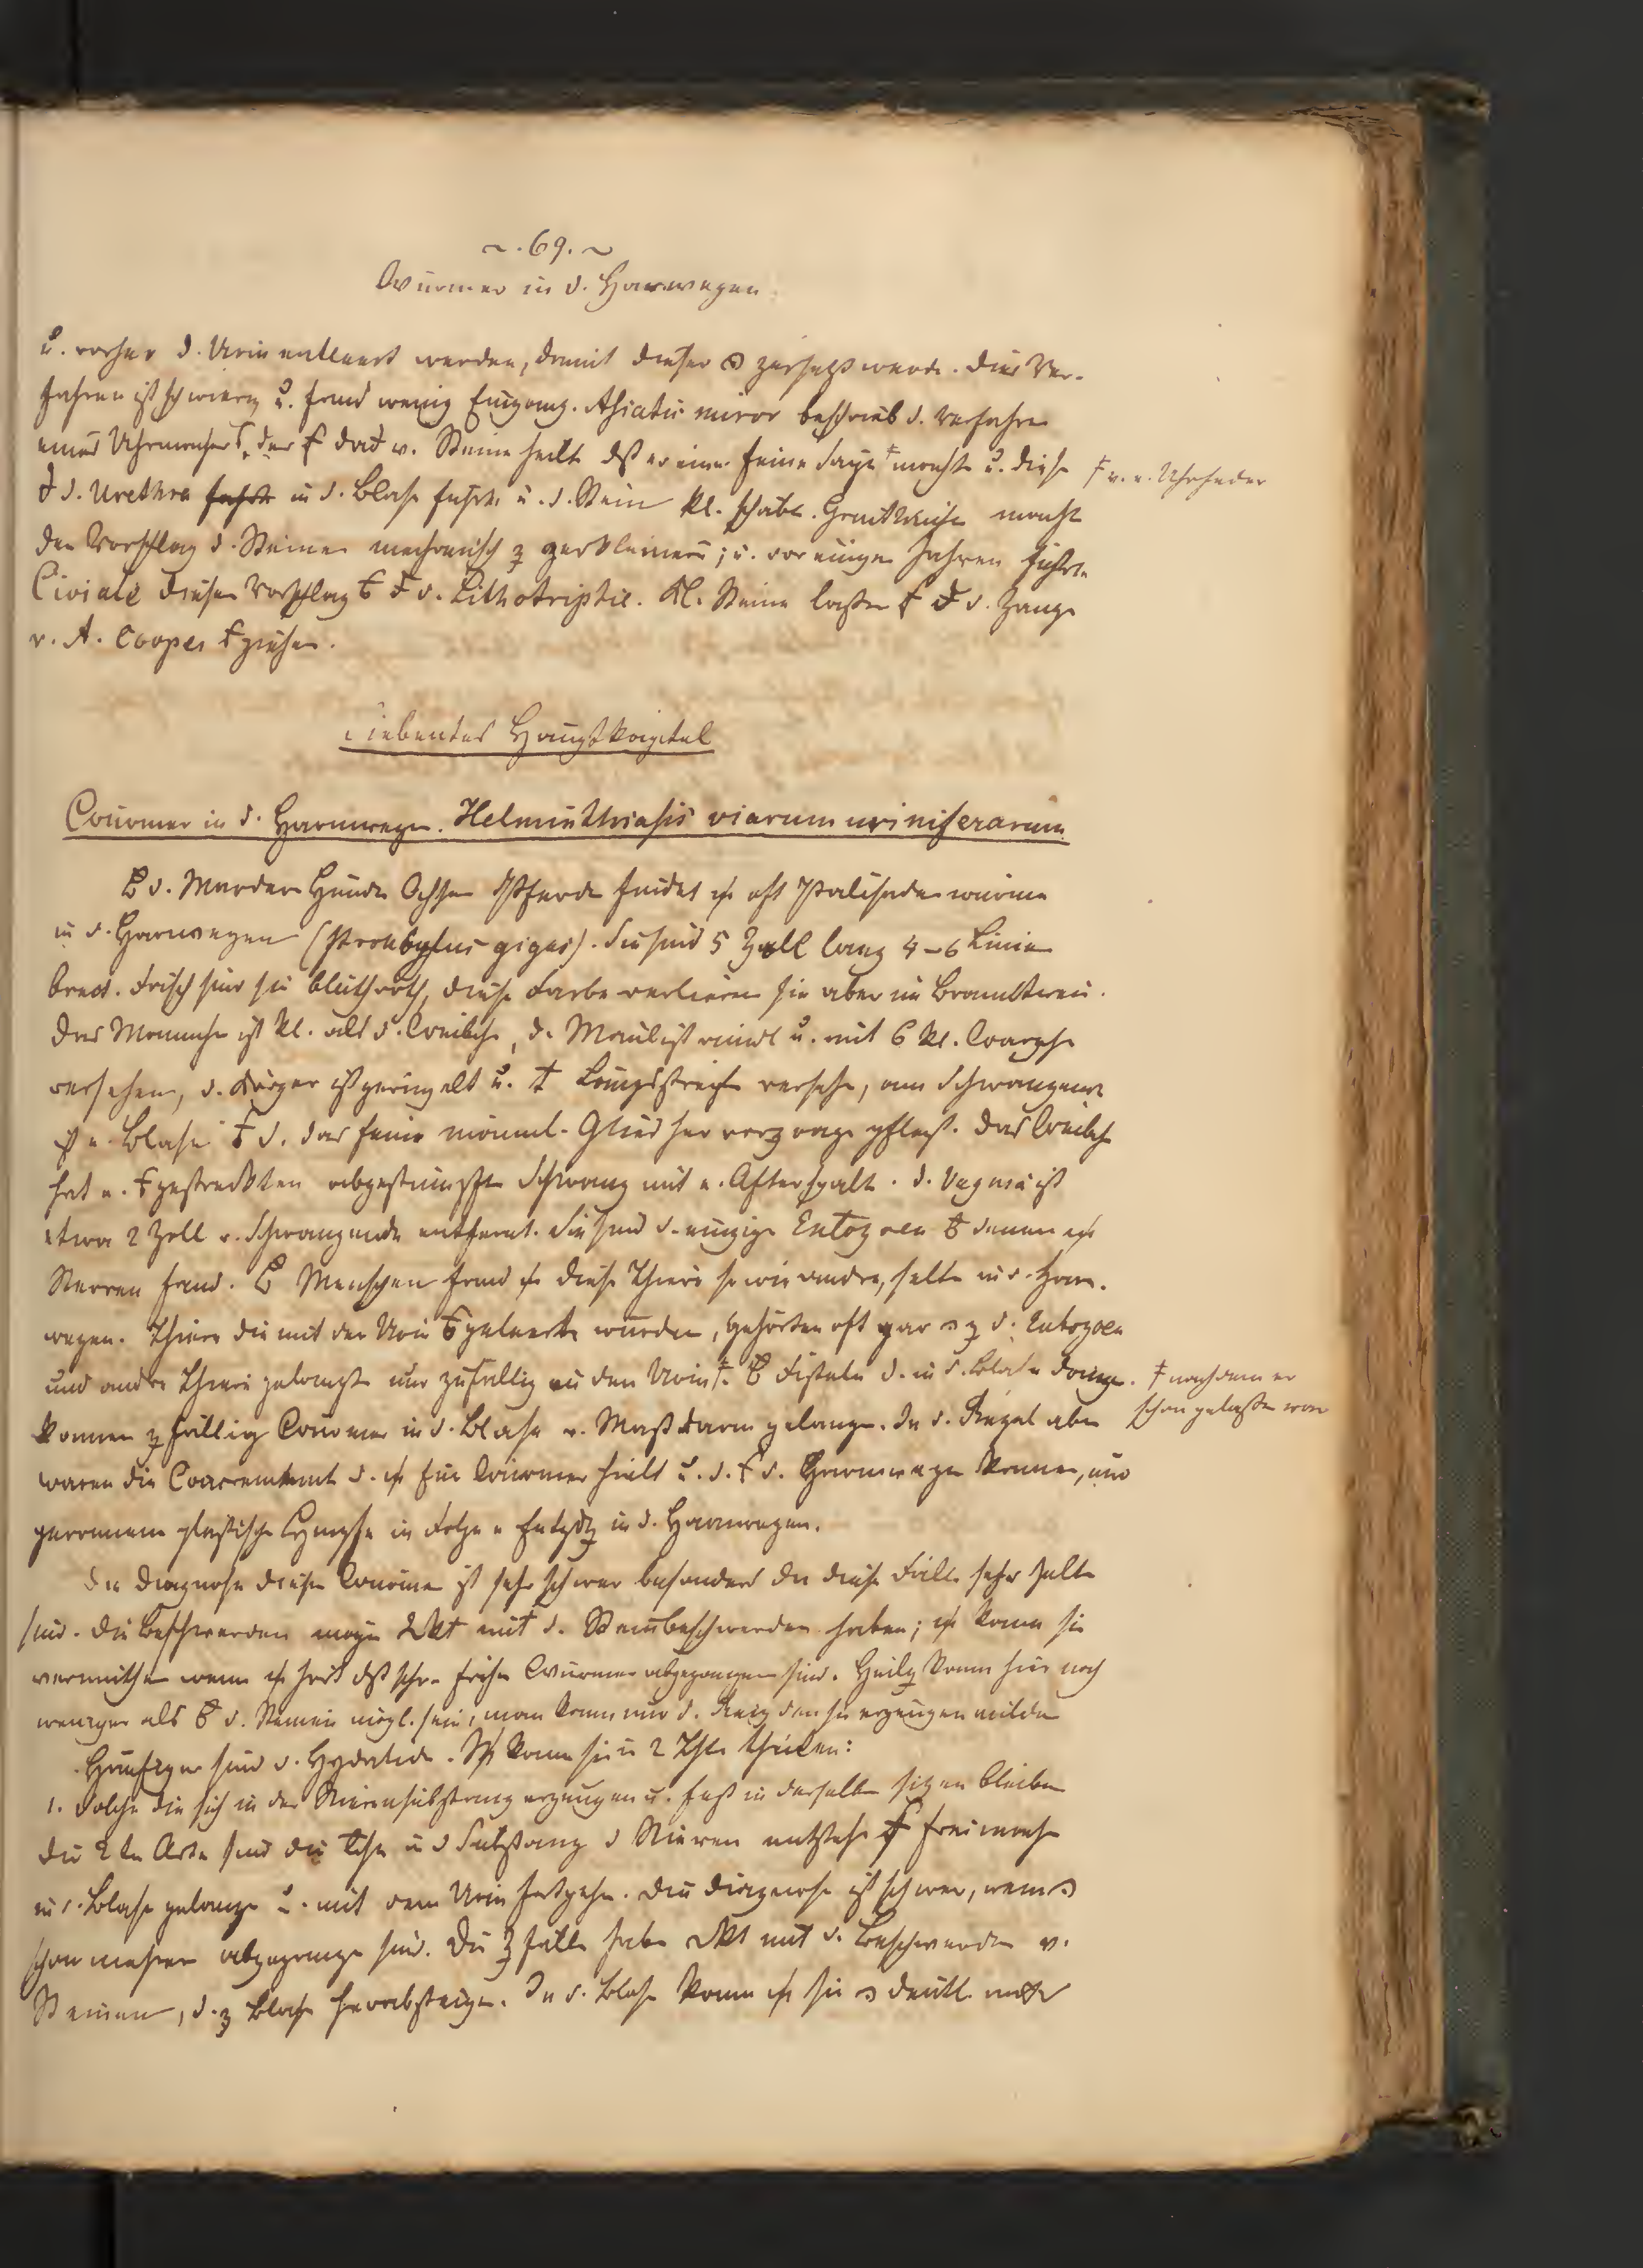 ~. 69. ~
Würmer in d. Harnwegen.
u. vorher d. Urin entleert werden, damit dieser zersetzt werde. Dies Ver-
fahren ist schwierig u. fand wenig Eingang. beschrieb d. Verfahren
eines Uhrmachers, der v. Steine heilt dß er eine feine Säge † machte u. diese
† v. e. Uhrfeder
d. Urethra in d. Blase führte u. d. Stein kl. schabte. Gruithuisen machte
den Vorschlag d. Steine mechanisch z zerkleinern; u. vor einigen Jahren führte
Civiale diesen Vorschlag d. Lithotriptie. Kl. Steine lassen d. Zange
v. A. Cooper ziehen.
Siebentes Hauptkapitel
Würmer in d. Harnwegen. Helminthiasis viarum uriniferarum
d. Marder Hunde Ochsen Pferde findet oft Palisadenwürmer
in d. Harnwegen (Strongylus gigas). Sie sind 5 Zoll lang 4–6 Linien
breit. Frisch sind sie blutroth, diese Farbe verlieren sie aber im Branntwein.
Das Männche ist kl. als d. Weibche, d. Maul ist rund u. mit 6 kl. Warzche
versehen, d. Körper ist geringelt u. Längsstreife versehe, am Schwanzende
ist e. Blase d. das feine männl. Glied hervorzrage pflegt. Das Weibche
hat e. gestreckten abgestumpfte Schwanz mit e. Afterspalt. d. Vagina ist
etwa 2 Zoll v. Schwanzende entfernt. Sie sind d. einzige Entozoen denen
Nerven fand. Menschen fand diese Thiere so wie andre, selte in d. Harn-
wegen. Thiere die mit den Urin geleerte wurden, gehörten oft gar z d. Entozoen
und andre Thiere gelangte nur zufällig in den Urin †. Fisteln d. in d. Blase
† nachdem er
schon gelassen war
können zfällig Würmer in d. Blase v. Mastdarm gelange. In d. Regel aber
waren die d. für Würmer hielt u. d. d. Harnwege kamen, nur
geronnene plastische Lymphe in Folge e Entzdg in d. Harnwegen.
Die Diagnose dieser Würmer ist sehr schwer besonders da diese Fälle sehr selte
sind. Die Beschwerden möge mit d. Steinbeschwerden haben; kann sie
vermuthen wenn hört dß schon früher Würmer abgegangen sind. Heilg kann hier noch
weniger als d. Steinen mögl. sein, man kann nur d. Reiz den sie erzeugen milde
Häufiger sind d. Hydatide. kann sie in 2 Thle theilen:
1. Solche die sich in der Nierensubstanz erzeugen u. fest in derselbe sitzen bleiben
Die 2te Arte sind die in d Substanz d Nieren entstehe frei mache
in d. Blase gelange u. mit dem Urin fortgehe. Die Diagnose ist schwer, wenn
schon mehrere abgegange sind. Die Zfälle habe mit d. Beschwerde v.
Steinen, d. z Blase herabsteige. In d. Blase kann sie deutl.